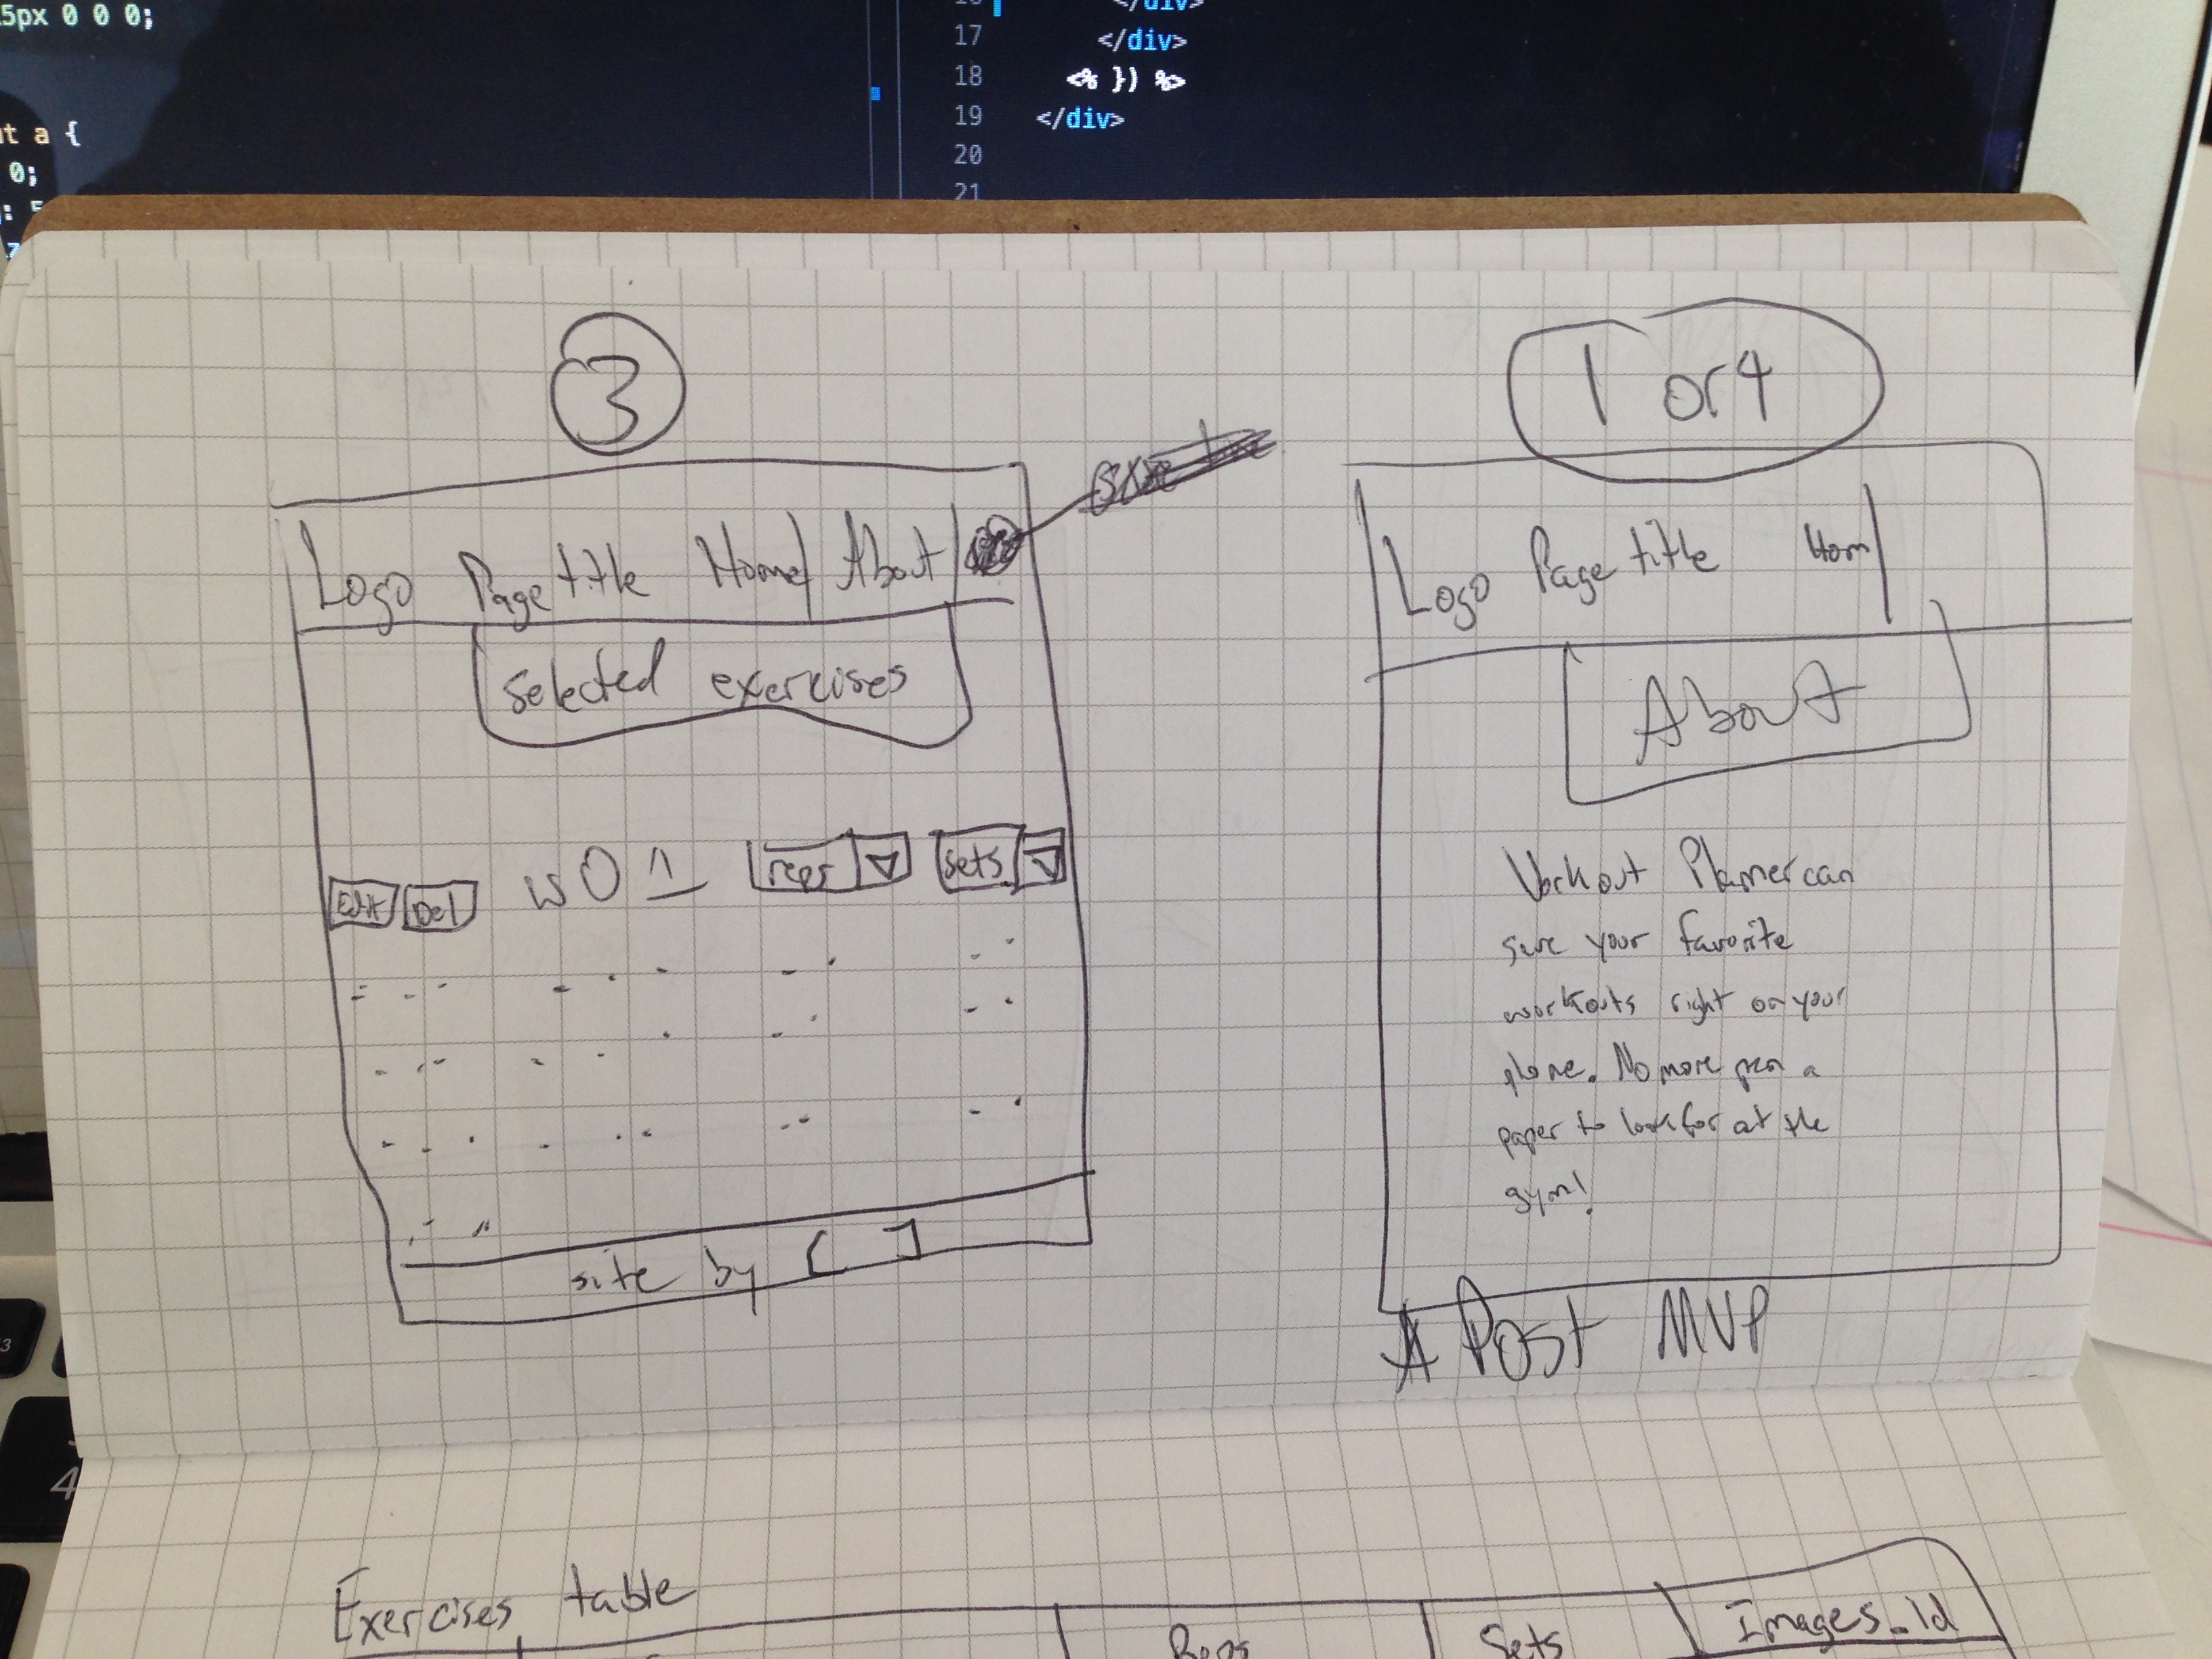 5px 0 0 0;
a {
0;
</div>
17 </div>
18 <% }) %>
19 </div>
20
21
3
Logo Page title Home/ About/
selected exercises
Edit Del WO 1 reps sets
site by [ ]
1 or 4
Logo Page title Hom
About
Workout Planner can
save your favorite
workouts right on your
phone. No more pen a
paper to look for at the
gym!
Post MVP
Exercises table
Reps Sets Images_id